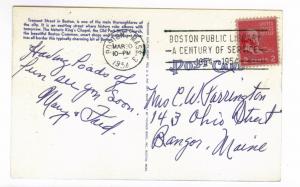 Tremont Street in Boston, is one of the main thoroughfares of
the city. It is an extra wide street where runs
The historic King's Chapel, the Old Park Street Church,
the beautiful Boston Common, smart shops and
all border this typically charming bit of Boston.
Having loads of
fun see you soon.
Mary & Fred.
BOSTON MASS. 3
MAR
10-PM
1954
BOSTON PUBLIC LIBRARY
A CENTURY OF SERVICE
1854 1954
2
POST CARD
Mrs C. W. Farrington
143 Ohio Street
Bangor,
Maine